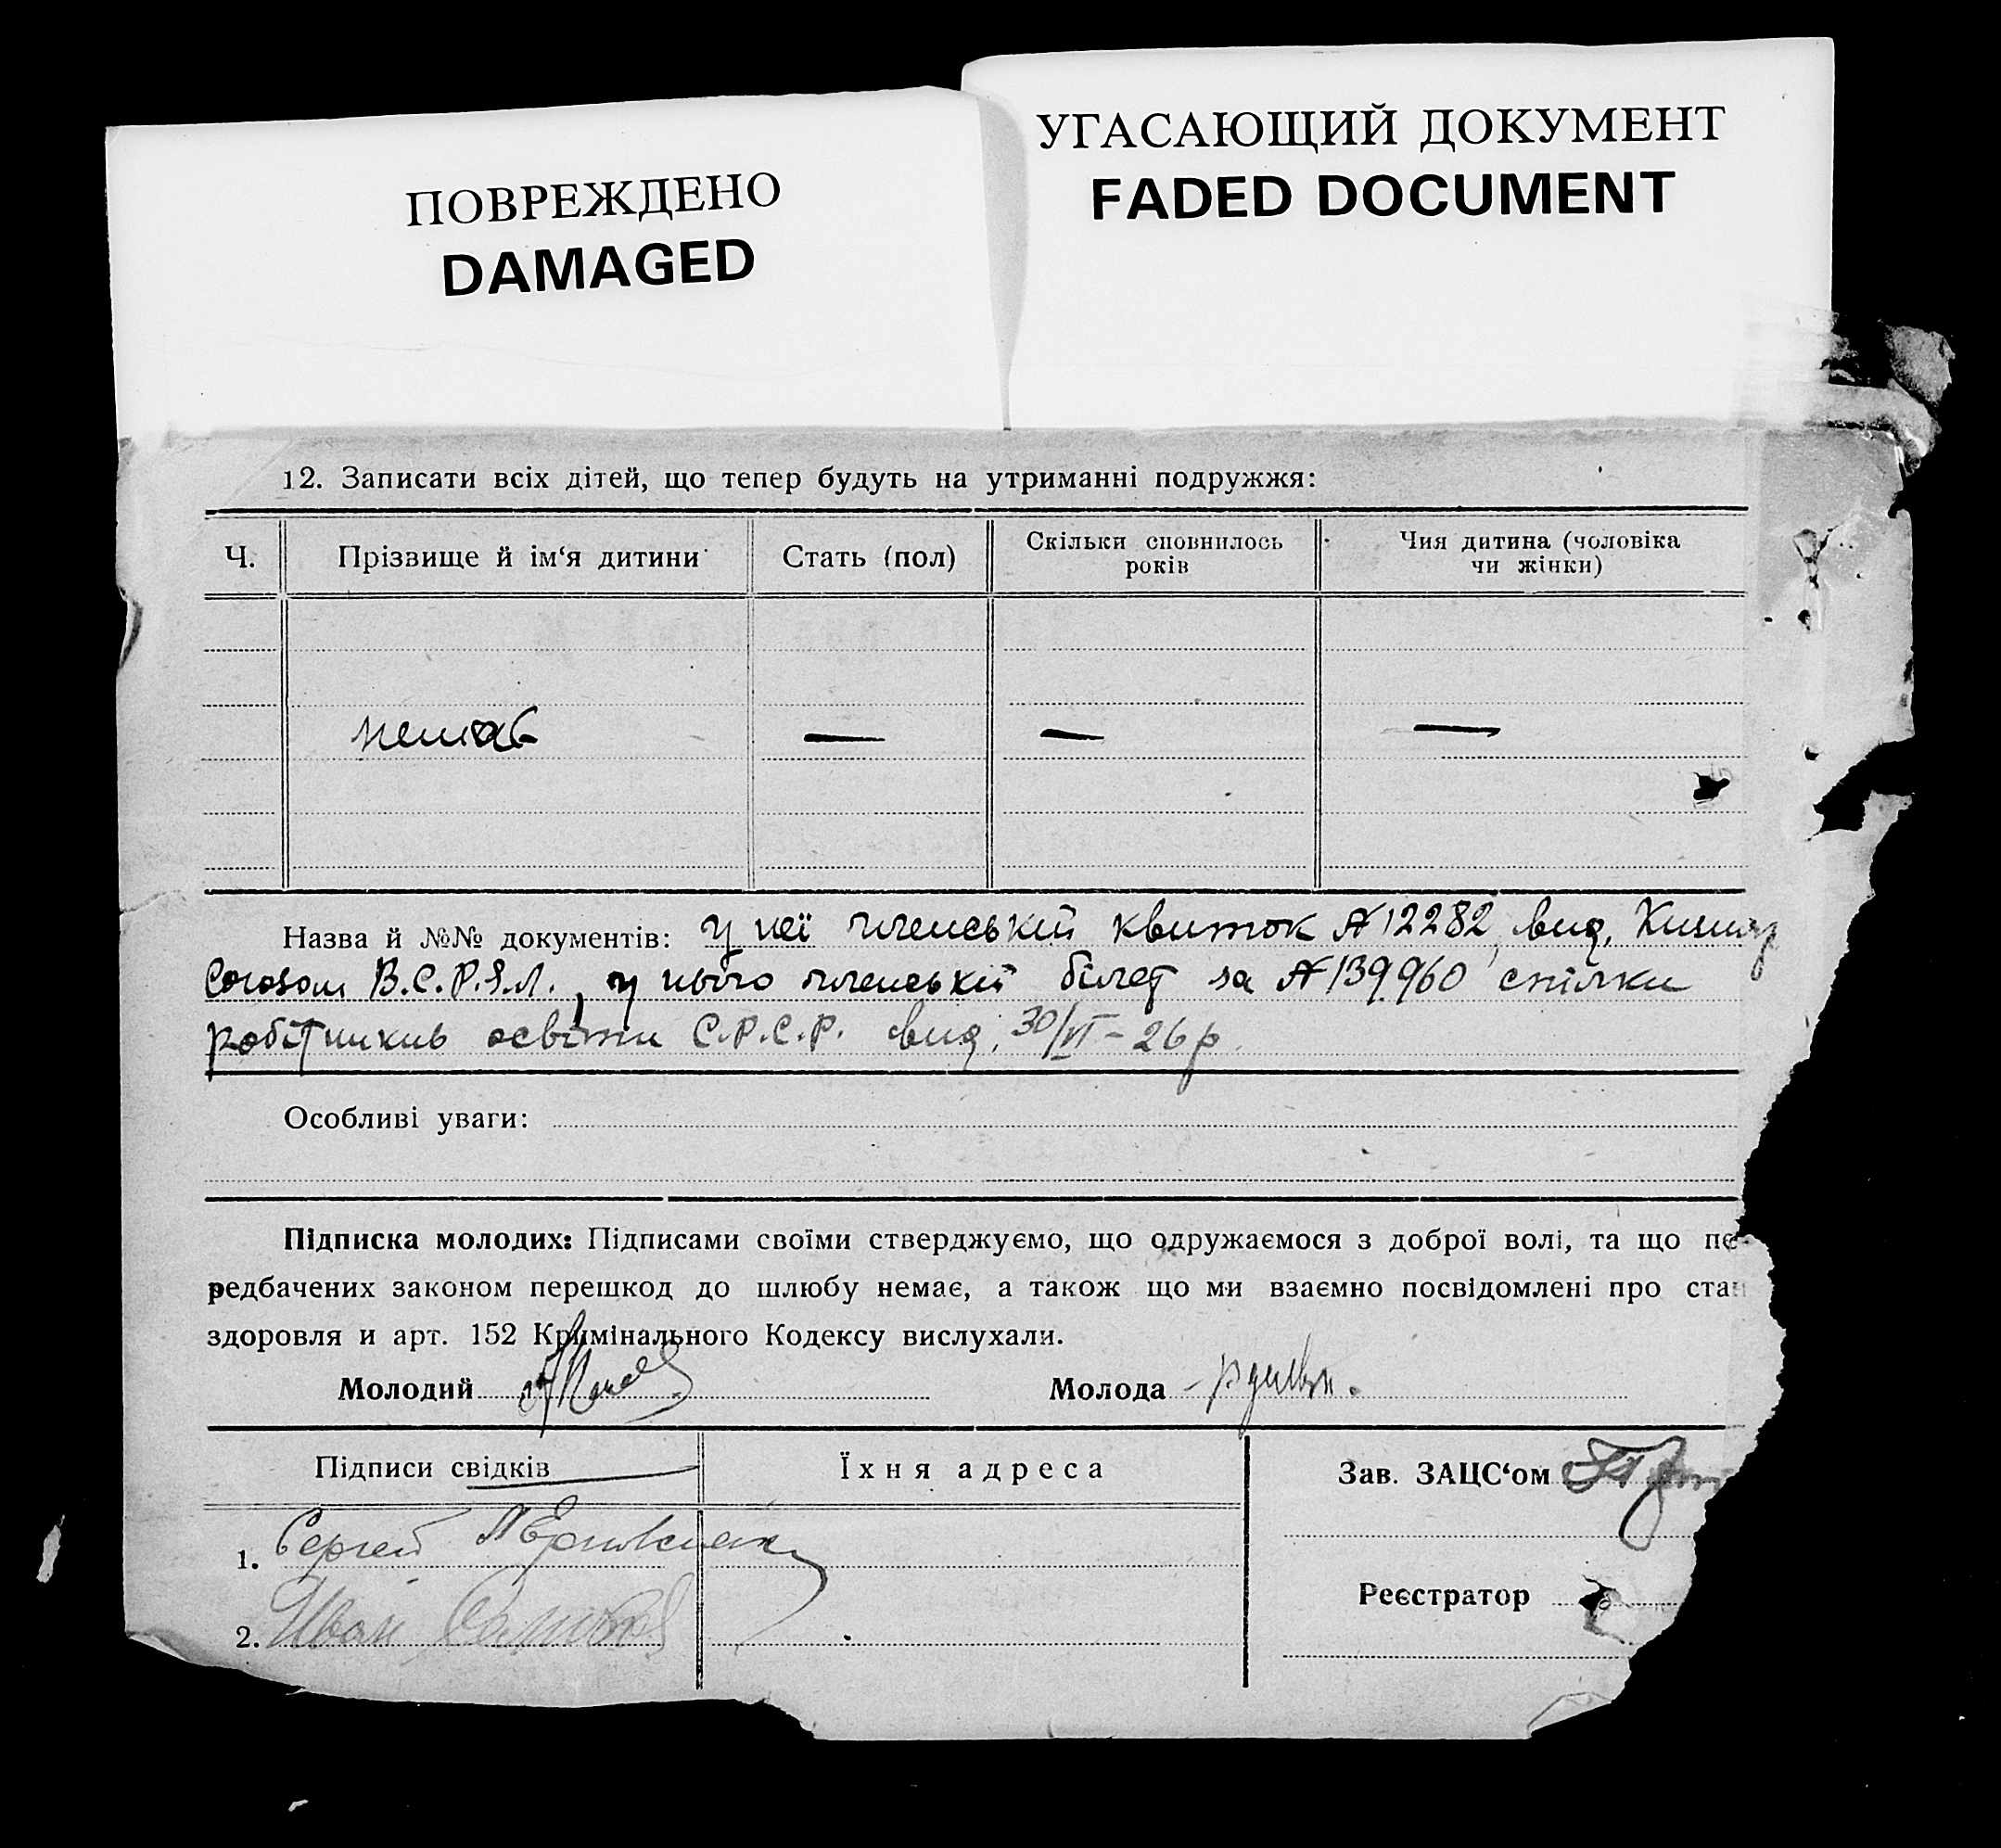 ПОВРЕЖДЕНО
DAMAGED
УГАСАЮЩИЙ ДОКУМЕНТ
FADED DOCUMENT
12. Записати всіх дітей, що тепер будуть на утриманні подружжя:
Ч. Прізвище й ім‘я дитини Стать (пол) Скільки сповнилось років Чия дитина (чоловіка чи жінки)
немає — — —
Назва й №№ документів: у неї членській квиток № 12282, вид.
Союзом В.С.Р.З.Л., у нього членській білет за № 139960 спілки
робітників освіти С.Р.С.Р. вид. 30/VI – 26 р.
Особливі уваги:
Підписка молодих: Підписами своїми стверджуємо, що одружаємося з доброї волі, та що пе-
редбачених законом перешкод до шлюбу немає, а також що ми взаємно посвідомлені про стан
здоровля и арт. 152 Кримінального Кодексу вислухали.
Молодий Молода
Підписи свідків Їхня адреса Зав. ЗАЦС‘ом
1. Сергей
Реєстратор
2. Иван